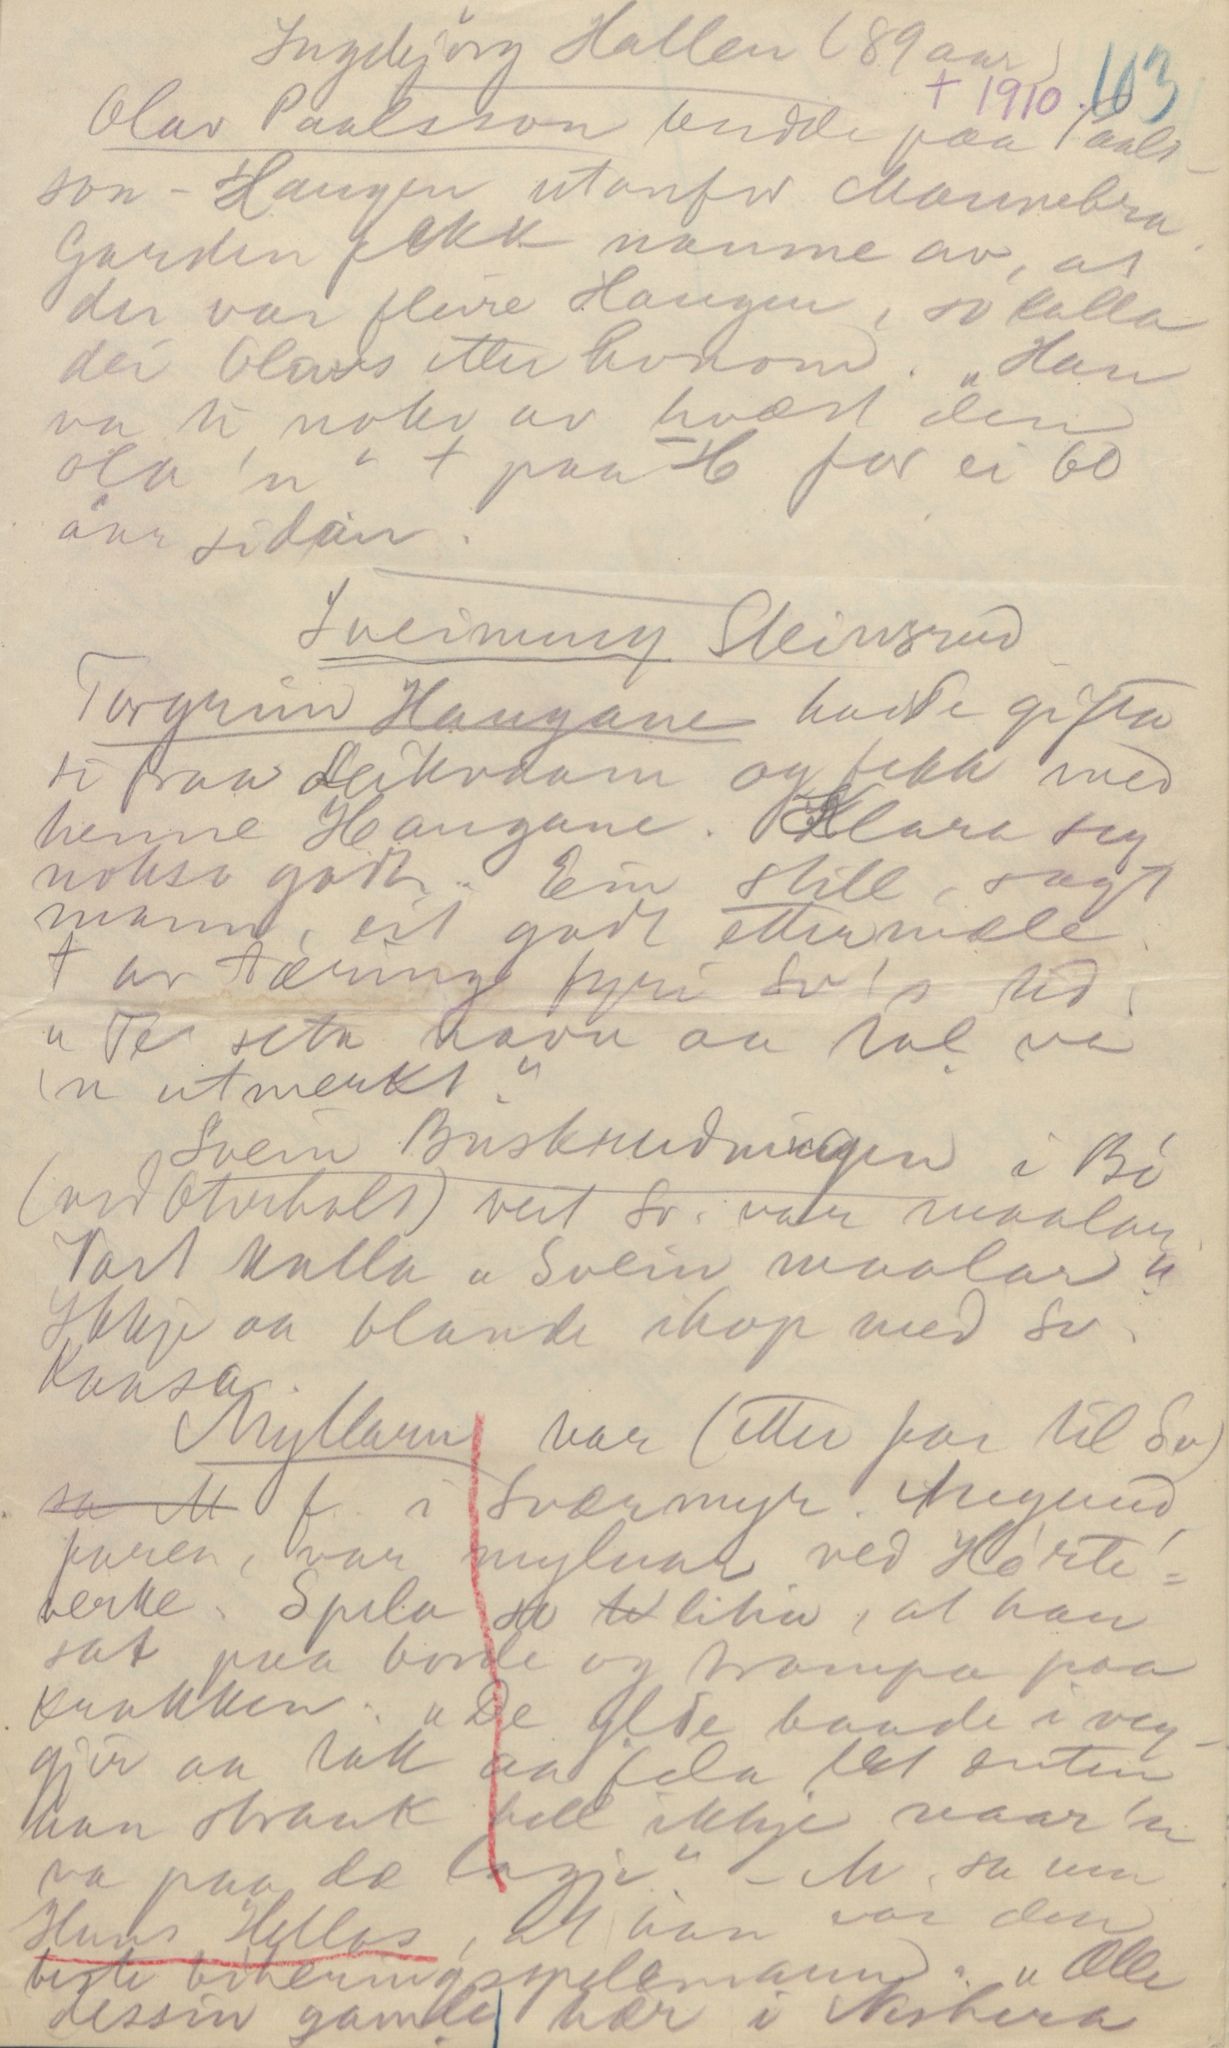 Ingebjörg Hallen (89 aar)
† 1910. 103
Olav Paalsson budde paa Paals-
son-Haugen utanfor
Garden fekk namne av, at
der var fleire Haugen, so kalla
dei Olavs etter honom. "Han
va te noko av hvært den
Ola 'n" † paa H for ei 60
aar sidan.
Sveinung Steinsrud
Torgrim Haugane hadde gifta
si fraa og fekk med
henne Haugane. Klara seg
nokso godt. Ein still, sagt
mann, eit godt ettermæle.
† av tæring fyri Sv's tid.
"Te seta navn aa tal va
'n utmerkt."
Svein Buskrudningen i Bö
(ved Oterholt) veit Sv. var maalar.
Vart kalla "Svein maalar"
Ikkje aa blande ihop med Sv.
Kaasa.
Myllarn var (etter far til Sv)
sa M f. i Sværmyr.
faren, var mylnar ved Hörte-
verke. Spela so litin, at han
sat paa borde og trampa paa
krakken. "De glde baade i veg-
gjir aa tak aa fela let enten
han strauk hell ikkje naar 'n
va paa de lagje" - M. sa um
Hans Hellos, at han var den
beste spelemann. "Alle
dessin gamle hær i